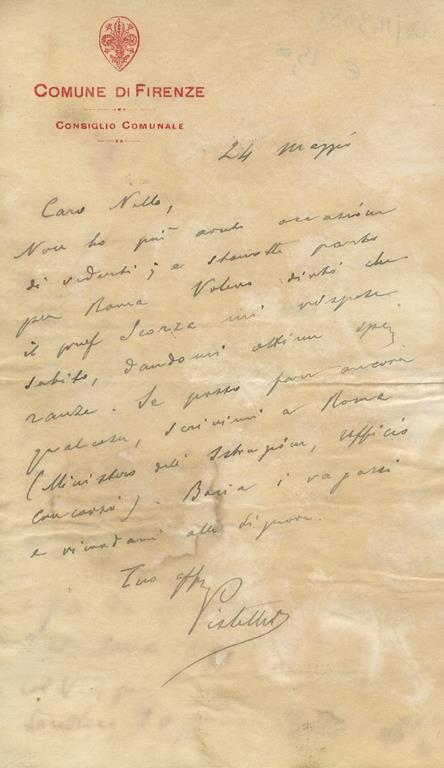 COMUNE DI FIRENZE
CONSIGLIO COMUNALE
24 maggio
Caro Nello,
Non ho più avuto occasione
di vederti; e stanotte parto
per Roma. Volevo dirti che
il prof Scorza mi rispose
subito, dandomi ottime spe
ranze. Se posso fare ancora
qualcosa, scrivimi a Roma
(Ministero dell' Istruzione, Ufficio
Concorsi). Bacia i ragazzi
e ricordami alla Signora.
Tuo aff
Pistelli